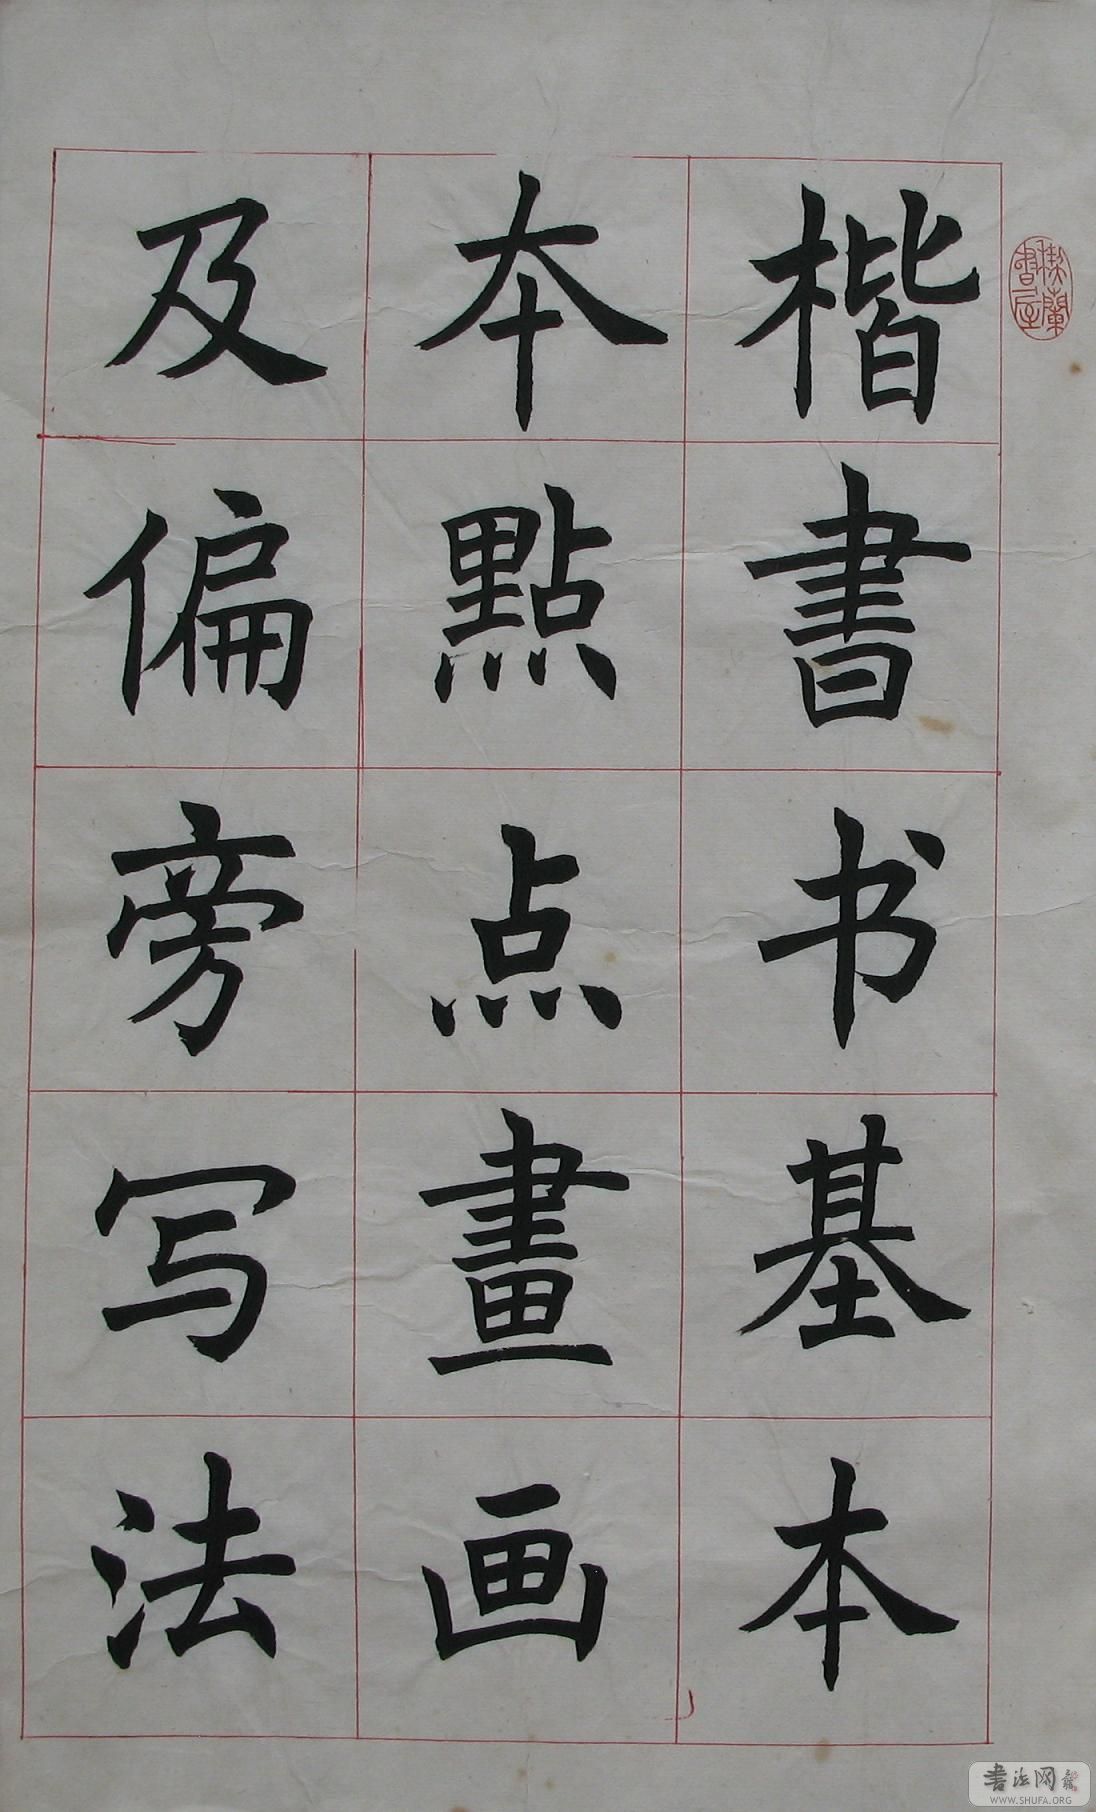 楷書书基本
夲點点畫画
及偏旁写法
蘭書屋
書法网
WWW.SHUFA.ORG